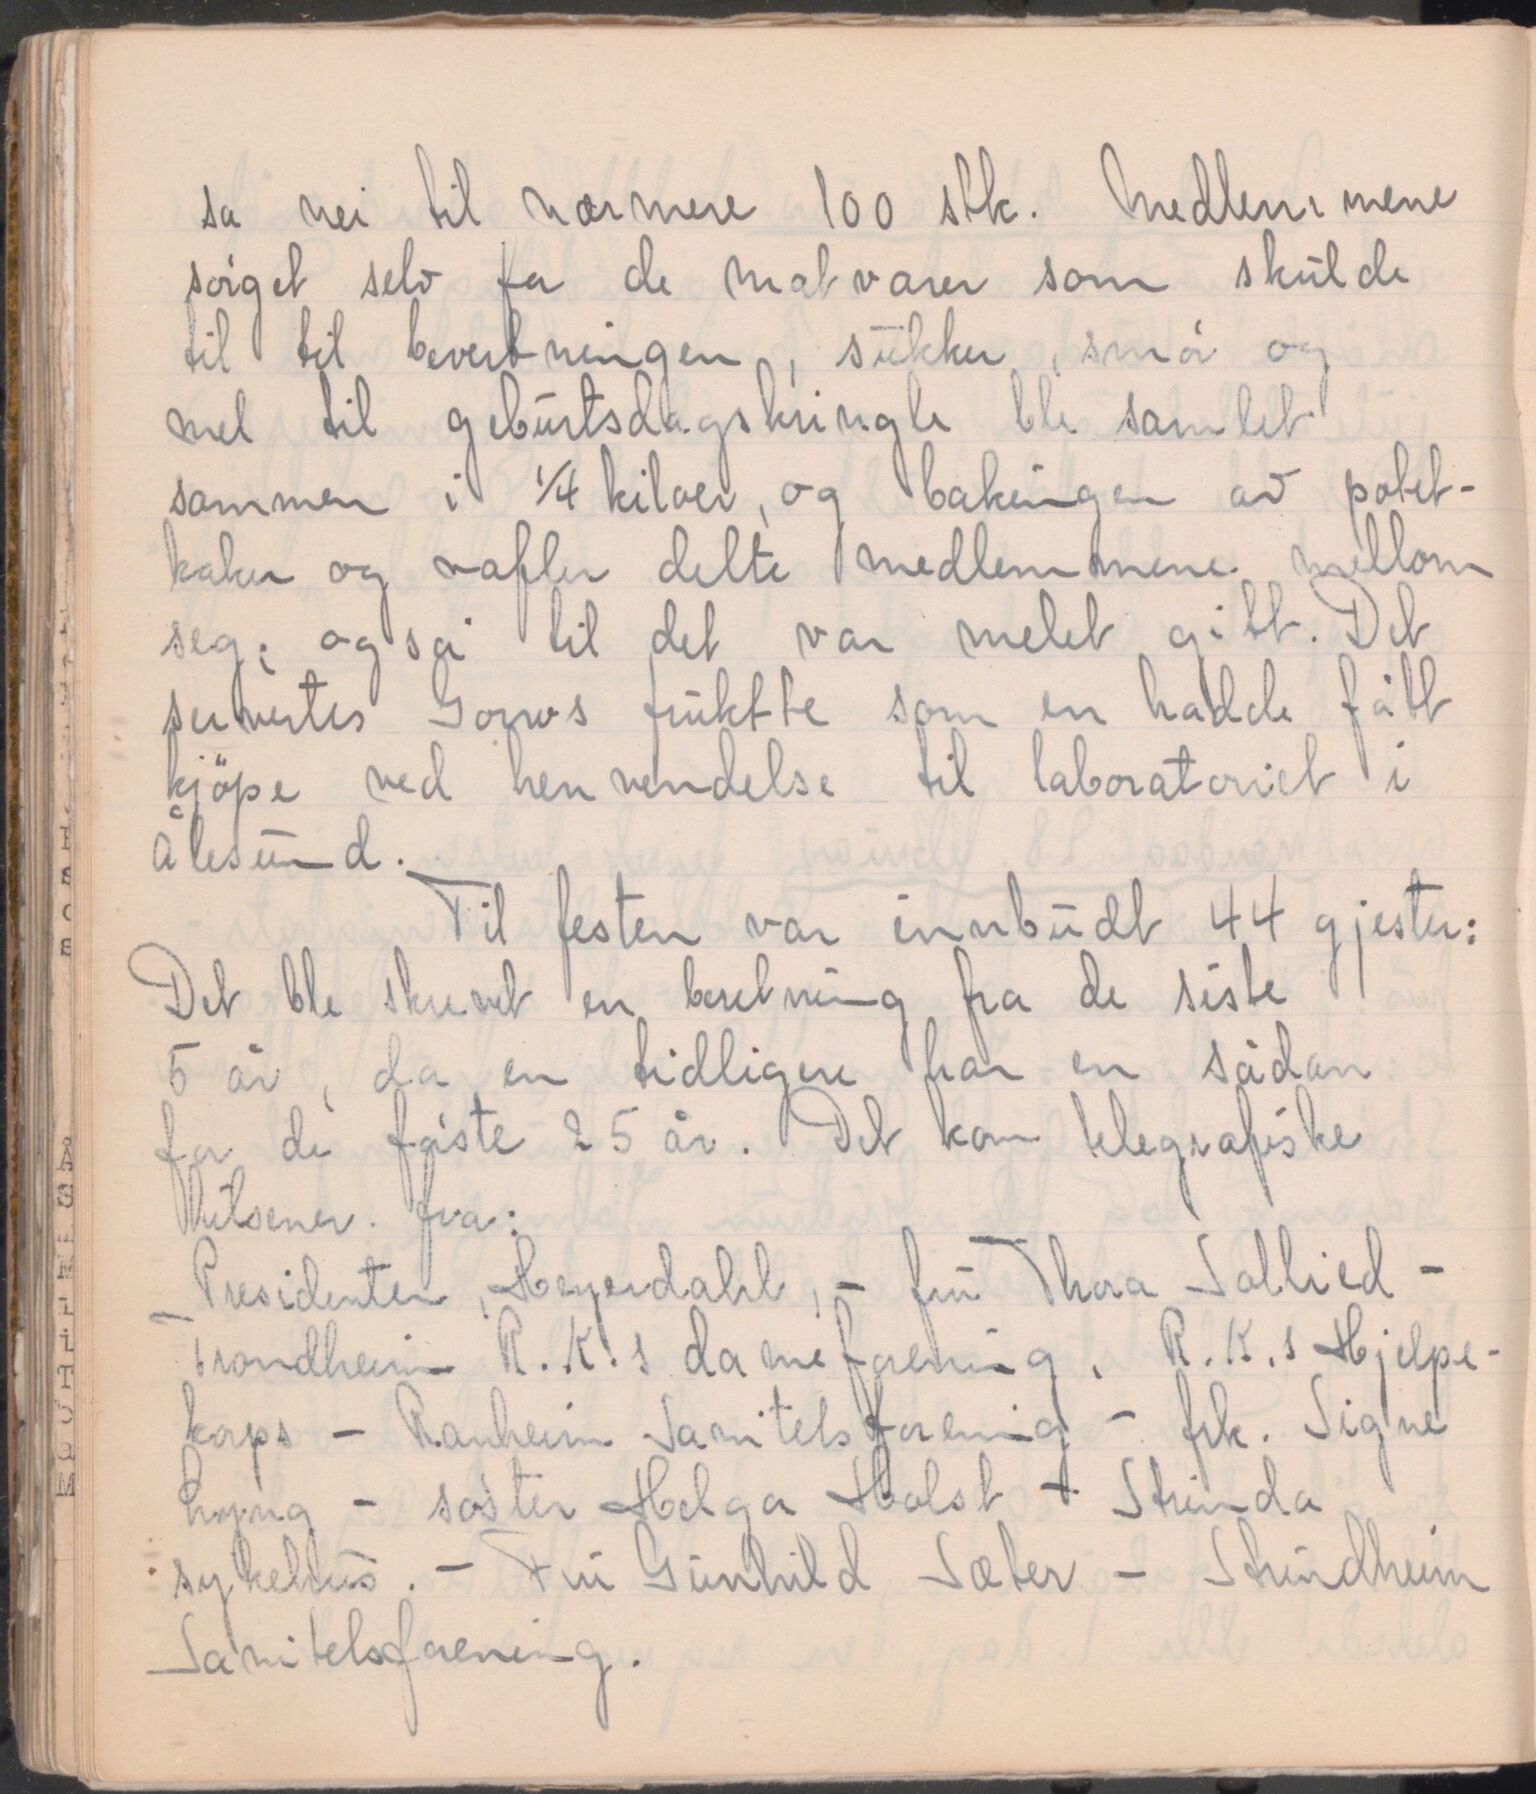 sa nei til nærmere 100 stk. Medlemmene
sørget selv for de matvarer som skulde
til til bevertningen, sukker, smør og
mel til geburtsdagskringle ble samlet
sammen i 1/4 kiloer, og bakingen av potet-
kaker og vafler delte medlemmene mellom
seg, også til det var melet gitt. Det
servertes Gorws fruktte som en hadde fått
kjöpe ved henvendelse til laboratoriet i
Ålesund.
Til festen var innbudt 44 gjester:
Det ble skrevet en beretning fra de siste
5 år, da en tidligere har en sådan
for de føste 25 år. Det kom telegrafiske
hilsener fra:
Presidenten, Heyerdahl, - fru Thora Sollied -
Trondheim R.K.s dameforening, R.K.s Hjelpe-
korps - Ranheim Sanitetsforening - frk. Signe
- søster Helga Holst - Strinda
sykehus. - Fru Gunhild Sæter - Strindheim
Sanitetsforening.